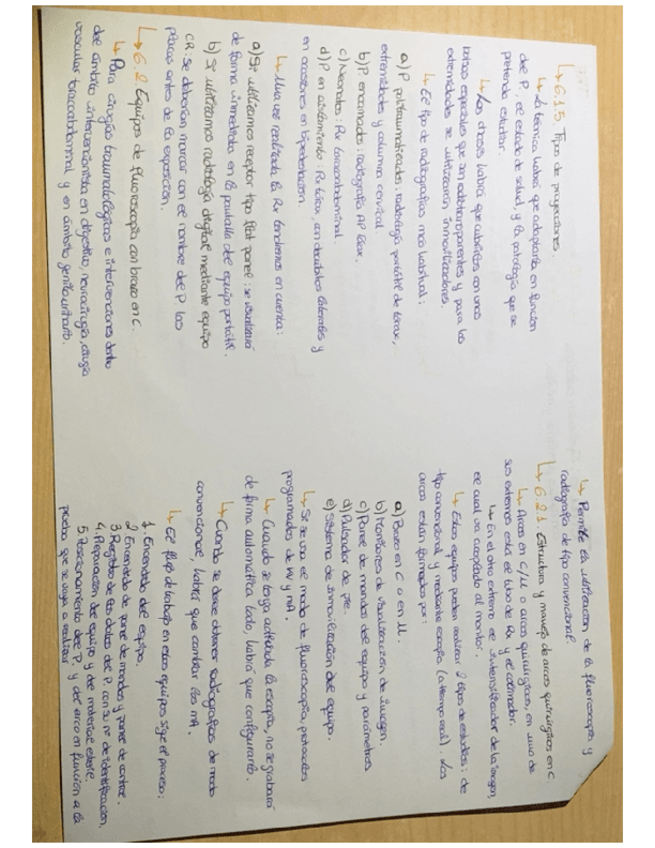 ↳ 6.1.3 Tipos de proyecciones.
↳ La técnica habrá que adaptarla en función
del P, el estado de salud y la patología que se
pretenda estudiar.
↳ Los chasis habrá que cubrirlos con unas
bolsas especiales que son radiotransparentes y para las
extremidades se utilizarán inmovilizadores.
↳ El tipo de radiografías más habitual:
a) P politraumatizados: radiología portátil de tórax,
extremidades y columna cervical.
b) P. encamados: radiografía AP tórax.
c) Neonatos: Rx toracoabdominal.
d) P en aislamiento: Rx tórax, con decúbitos laterales y
en ocasiones en bipedestación.
↳ Una vez realizada la Rx tendremos en cuenta:
a) Si utilizamos receptor tipo flat panel: se visualizará
de forma inmediata en la pantalla del equipo portátil.
b) Si utilizamos radiología digital mediante equipo
CR: se deberían marcar con el nombre del P las
placas antes de la exposición.
↳ 6.2 Equipos de fluoroscopia con brazo en C.
↳ Para cirugías traumatológicas e intervenciones dentro
del ámbito intervencionista en digestivo, neurocirugía, cirugía
vascular toracoabdominal y en ámbito genitourinario.
↳ Permite la utilización de la fluoroscopia y
radiografía de tipo convencional
↳ 6.2.1 Estructura y manejo de arcos quirúrgicos en C.
↳ Arcos en C/U o arcos quirúrgicos, en uno de
sus extremos está el tubo de Rx y el colimador.
↳ En el otro extremo el intensificador de la imagen,
el cual va acoplado al monitor.
↳ Estos equipos pueden realizar 2 tipos de estudios: de
tipo convencional y mediante escopia (a tiempo real). Los
arcos están formados por:
a) Brazo en C o en U.
b) Monitores de visualización de imagen.
c) Panel de mandos del equipo y parámetros
d) Pulsador de pie.
e) Sistema de inmovilización del equipo.
↳ Si se usa el modo de fluoroscopia, protocolos
programados de kV y mA.
↳ Cuando se tenga activada la escopia, no se grabará
de forma automática todo, habrá que configurarlo.
↳ Cuando se desee obtener radiografías de modo
convencional, habrá que cambiar los mA.
↳ El flujo de trabajo en estos equipos sigue el proceso:
1. Encendido del equipo.
2. Encendido de panel de mandos y panel de control.
3. Registro de los datos del P. con su nº de identificación.
4. Preparación del equipo y del material estéril.
5. Posicionamiento del P. y del arco en función a la
prueba que se vaya a realizar